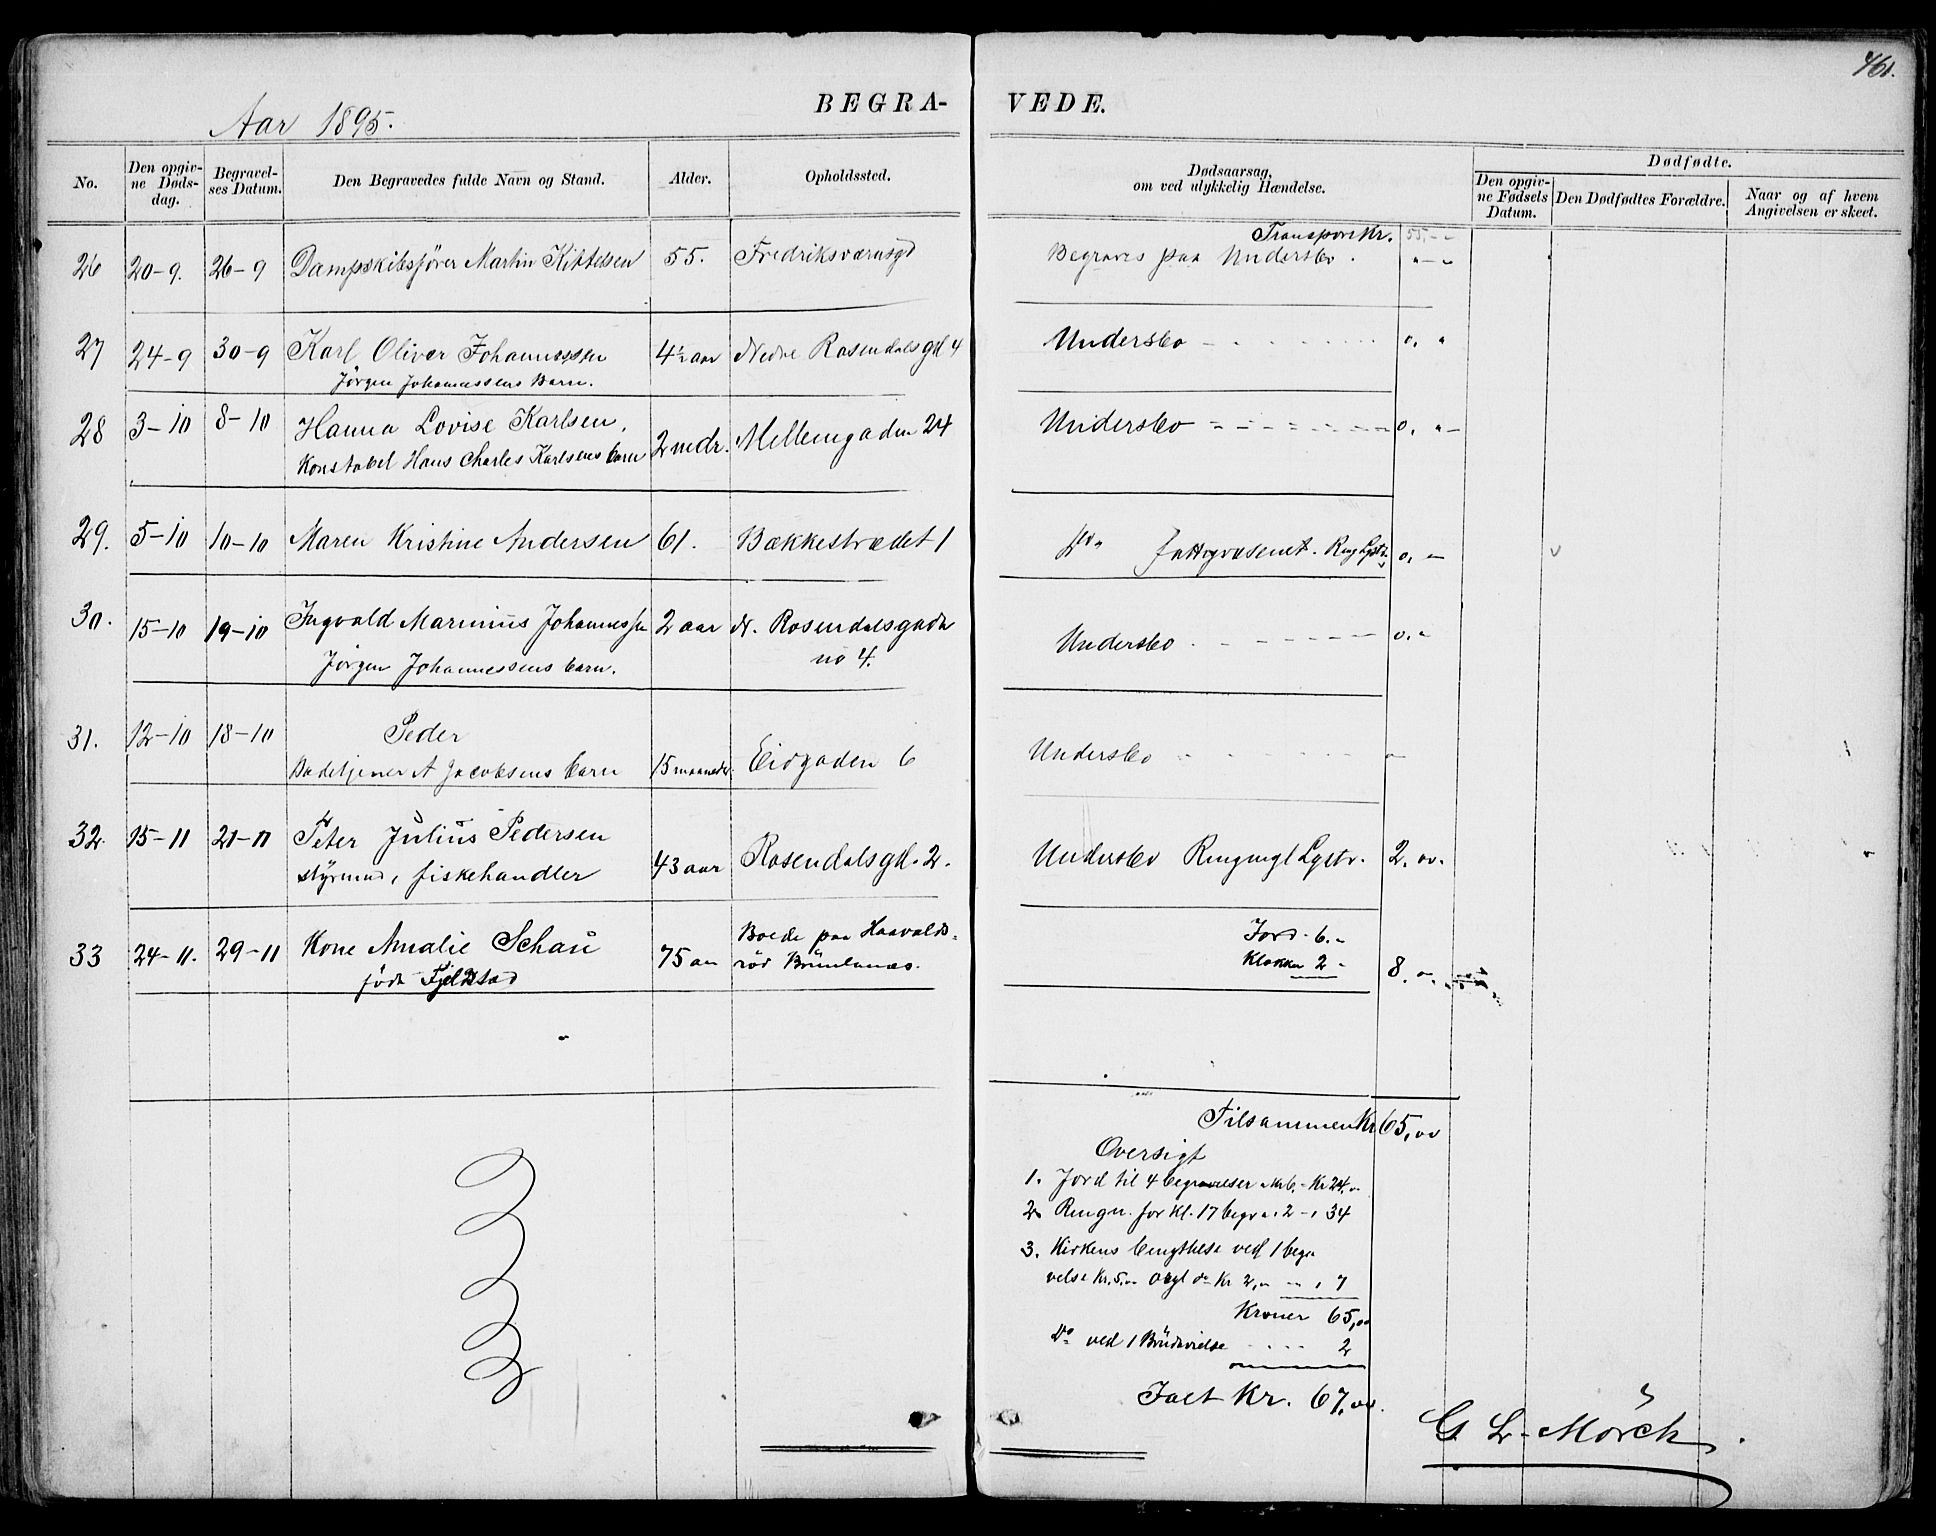 461.
BEGRA-VEDE.
Aar 1895.
No. Den opgiv-ne Døds-dag. Begravel-ses Datum. Den Begravedes fulde Navn og Stand. Alder. Opholdssted. Dødsaarsag, om ved ulykkelig Hændelse. Dødfødte.
Den opgiv-ne Fødsels Datum. Den Dødfødtes Forældre. Naar og af hvem Angivelsen er skeet.
Transport Kr. 55,--
26 20-9. 26-9 Dampskibsfører Martin Kittelsen 55. Fredriksværnsgd Begraves paa Undersbo. "-"
27 24-9 30-9 Karl Oliver Johannessen 4½ aar Nedre Rosendalsgd 4 Undersbo 0, "
Jørgen Johannessens Barn.
28 3-10 8-10 Hanna Lovise Karlsen, 2 mdr. Mellemgaden 24 Undersbo 0, "-
Konstabel Hans Charles Karlsens barn
29. 5-10 10-10 Maren Kristine Andersen 61. Bækkestrædet 1 Do fattigvæsenet. Ring Lystv. 0, -
30. 15-10 19-10 Ingvald Marinius Johannessen 2 aar N. Rosendalsgade Undersbo 0, "
Jørgen Johannessens barn. no 4.
31. 12-10 18-10 Peder
Badetjener A Jacobsens barn 15 maaneder. Eidgaden 6 Undersbo "
32. 15-11 21-11 Peter Julius Pedersen
styrmand, fiskehandler 43 aar Rosendalsgd. 2. Undersbo Ringning Lystv. 2,00.
33 24-11. 29-11 Kone Amalie Schau 75 aar Boede paa Haavalds- Jord 6. -
født Fjeldstad rød Brunlanæs. Klokker 2 - 8. "
Tilsammen Kr 65,00
Oversigt
1. Jord til 4 begravelser a Kr 6. - Kr 24,"
2. Ringn. for Kl. 17 begr a 2 - " 34
3. Kirkens benyttelse ved 1 begra
velse Kr. 5,00 Orgl do Kr 2,00 - " 7
Kroner 65,00
Do ved 1 Brudevielse 2
Ialt Kr. 67,00.
G L. Mörch.